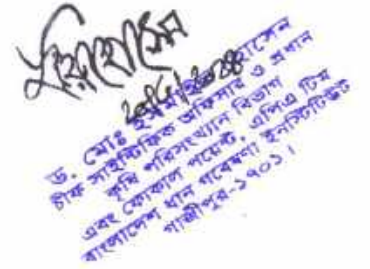 ড. মোঃ ইসমাইল হোসেন
চীফ সাইন্টিফিক অফিসার ও প্রধান
কৃষি পরিসংখ্যান বিভাগ
এবং ফোকাল পয়েন্ট, এপিএ টিম
বাংলাদেশ ধান গবেষণা ইনস্টিটিউট
গাজীপুর-১৭০১।